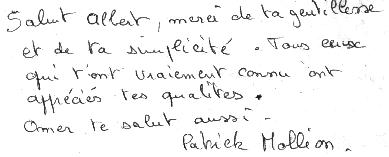 Salut Albert, merci de ta gentillesse
et de ta simplicité. Tous ceux
qui t'ont vraiement connu ont
appréciés tes qualites.
Omer te salut aussi.
Patrick Mollion.